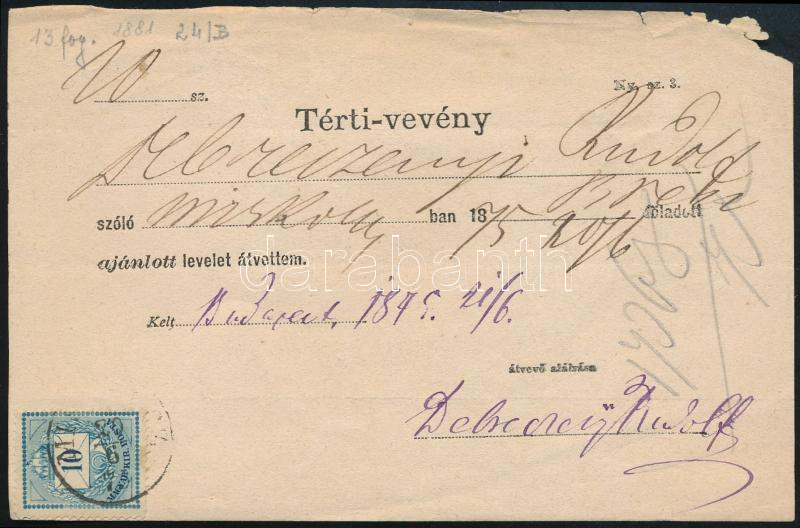 13 fog. 1881 24/B
sz. Ny. sz. 3.
Térti-vevény
Debreczenyi Rudolf
szóló Miskolcz ban 1875 20/6 föladott
ajánlott levelet átvettem.
darabanth
Kelt, Budapest, 1875. 21/6.
átvevő aláírása
Debreczenyi Rudolf
10
MAGYAR KIR. POSTA